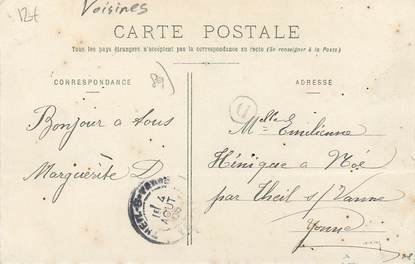 12f
Voisines
CARTE POSTALE
Tous les pays étrangers n'acceptent pas la correspondance au recto (Se renseigner à la Poste)
CORRESPONDANCE
89
ADRESSE
D
Bonjour a tous
Marguerite D
Melle Emilienne
Hénique a Noé
par Theil s/ Vanne
Yonne
THEIL-S-VANNE
4
AOUT
05